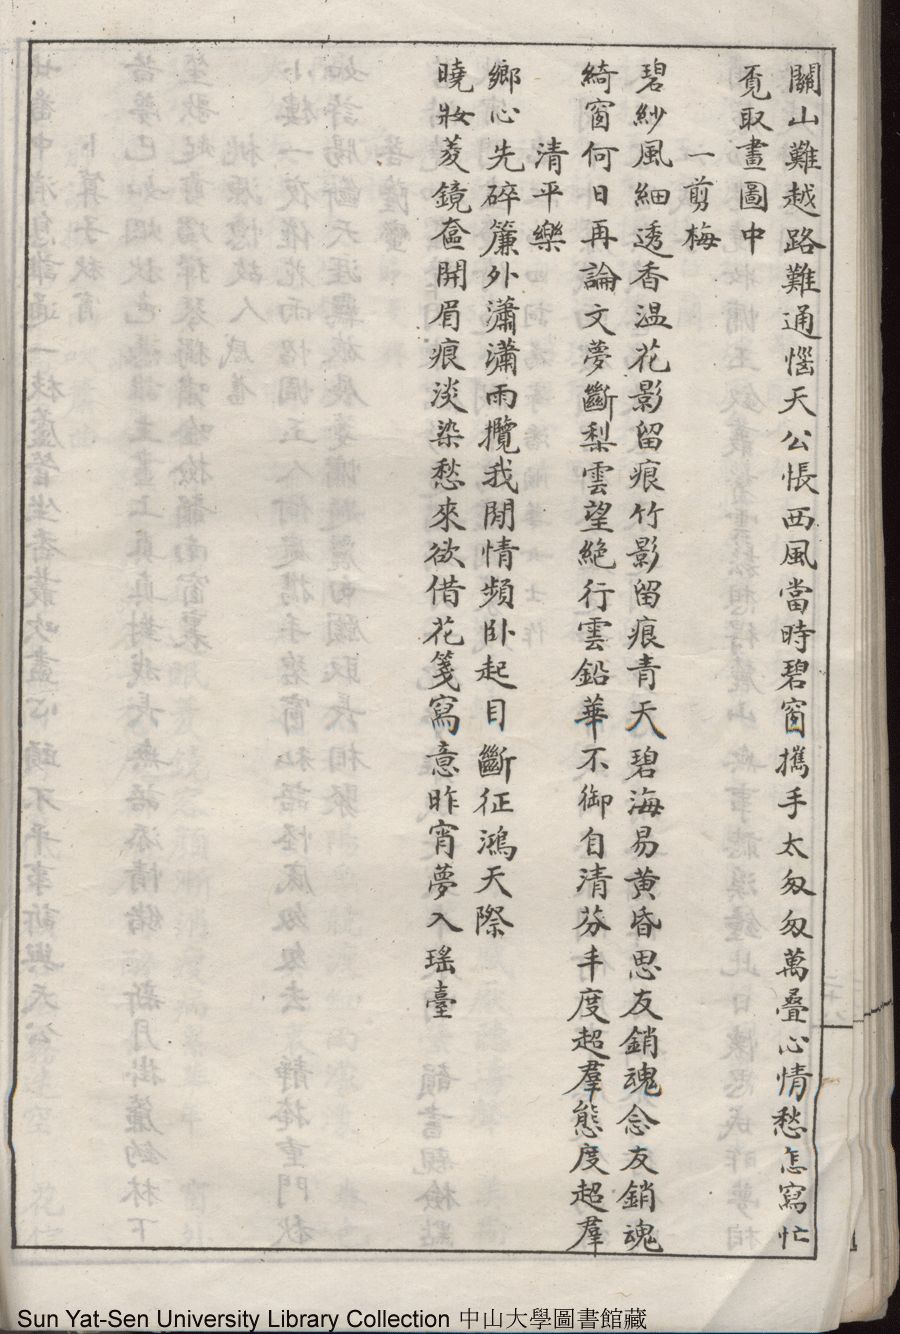 關山難越路難通惱天公悵西風當時碧窗攜手太匆匆萬疊心情愁怎寫忙
覓取畫圖中
一剪梅
碧紗風細透香温花影留痕竹影留痕青天碧海易黄昏思友銷魂念友銷魂
綺窗何日再論文夢斷梨雲望絶行雲鉛華不御自清芬丰度超羣態度超羣
清平樂
鄉心先碎簾外瀟瀟雨攬我閒情頻卧起目斷征鴻天際
曉妝菱鏡奩開眉痕淡染愁來欲借花箋寫意昨宵夢入瑶臺
Sun Yat-Sen University Library Collection 中山大學圖書館藏